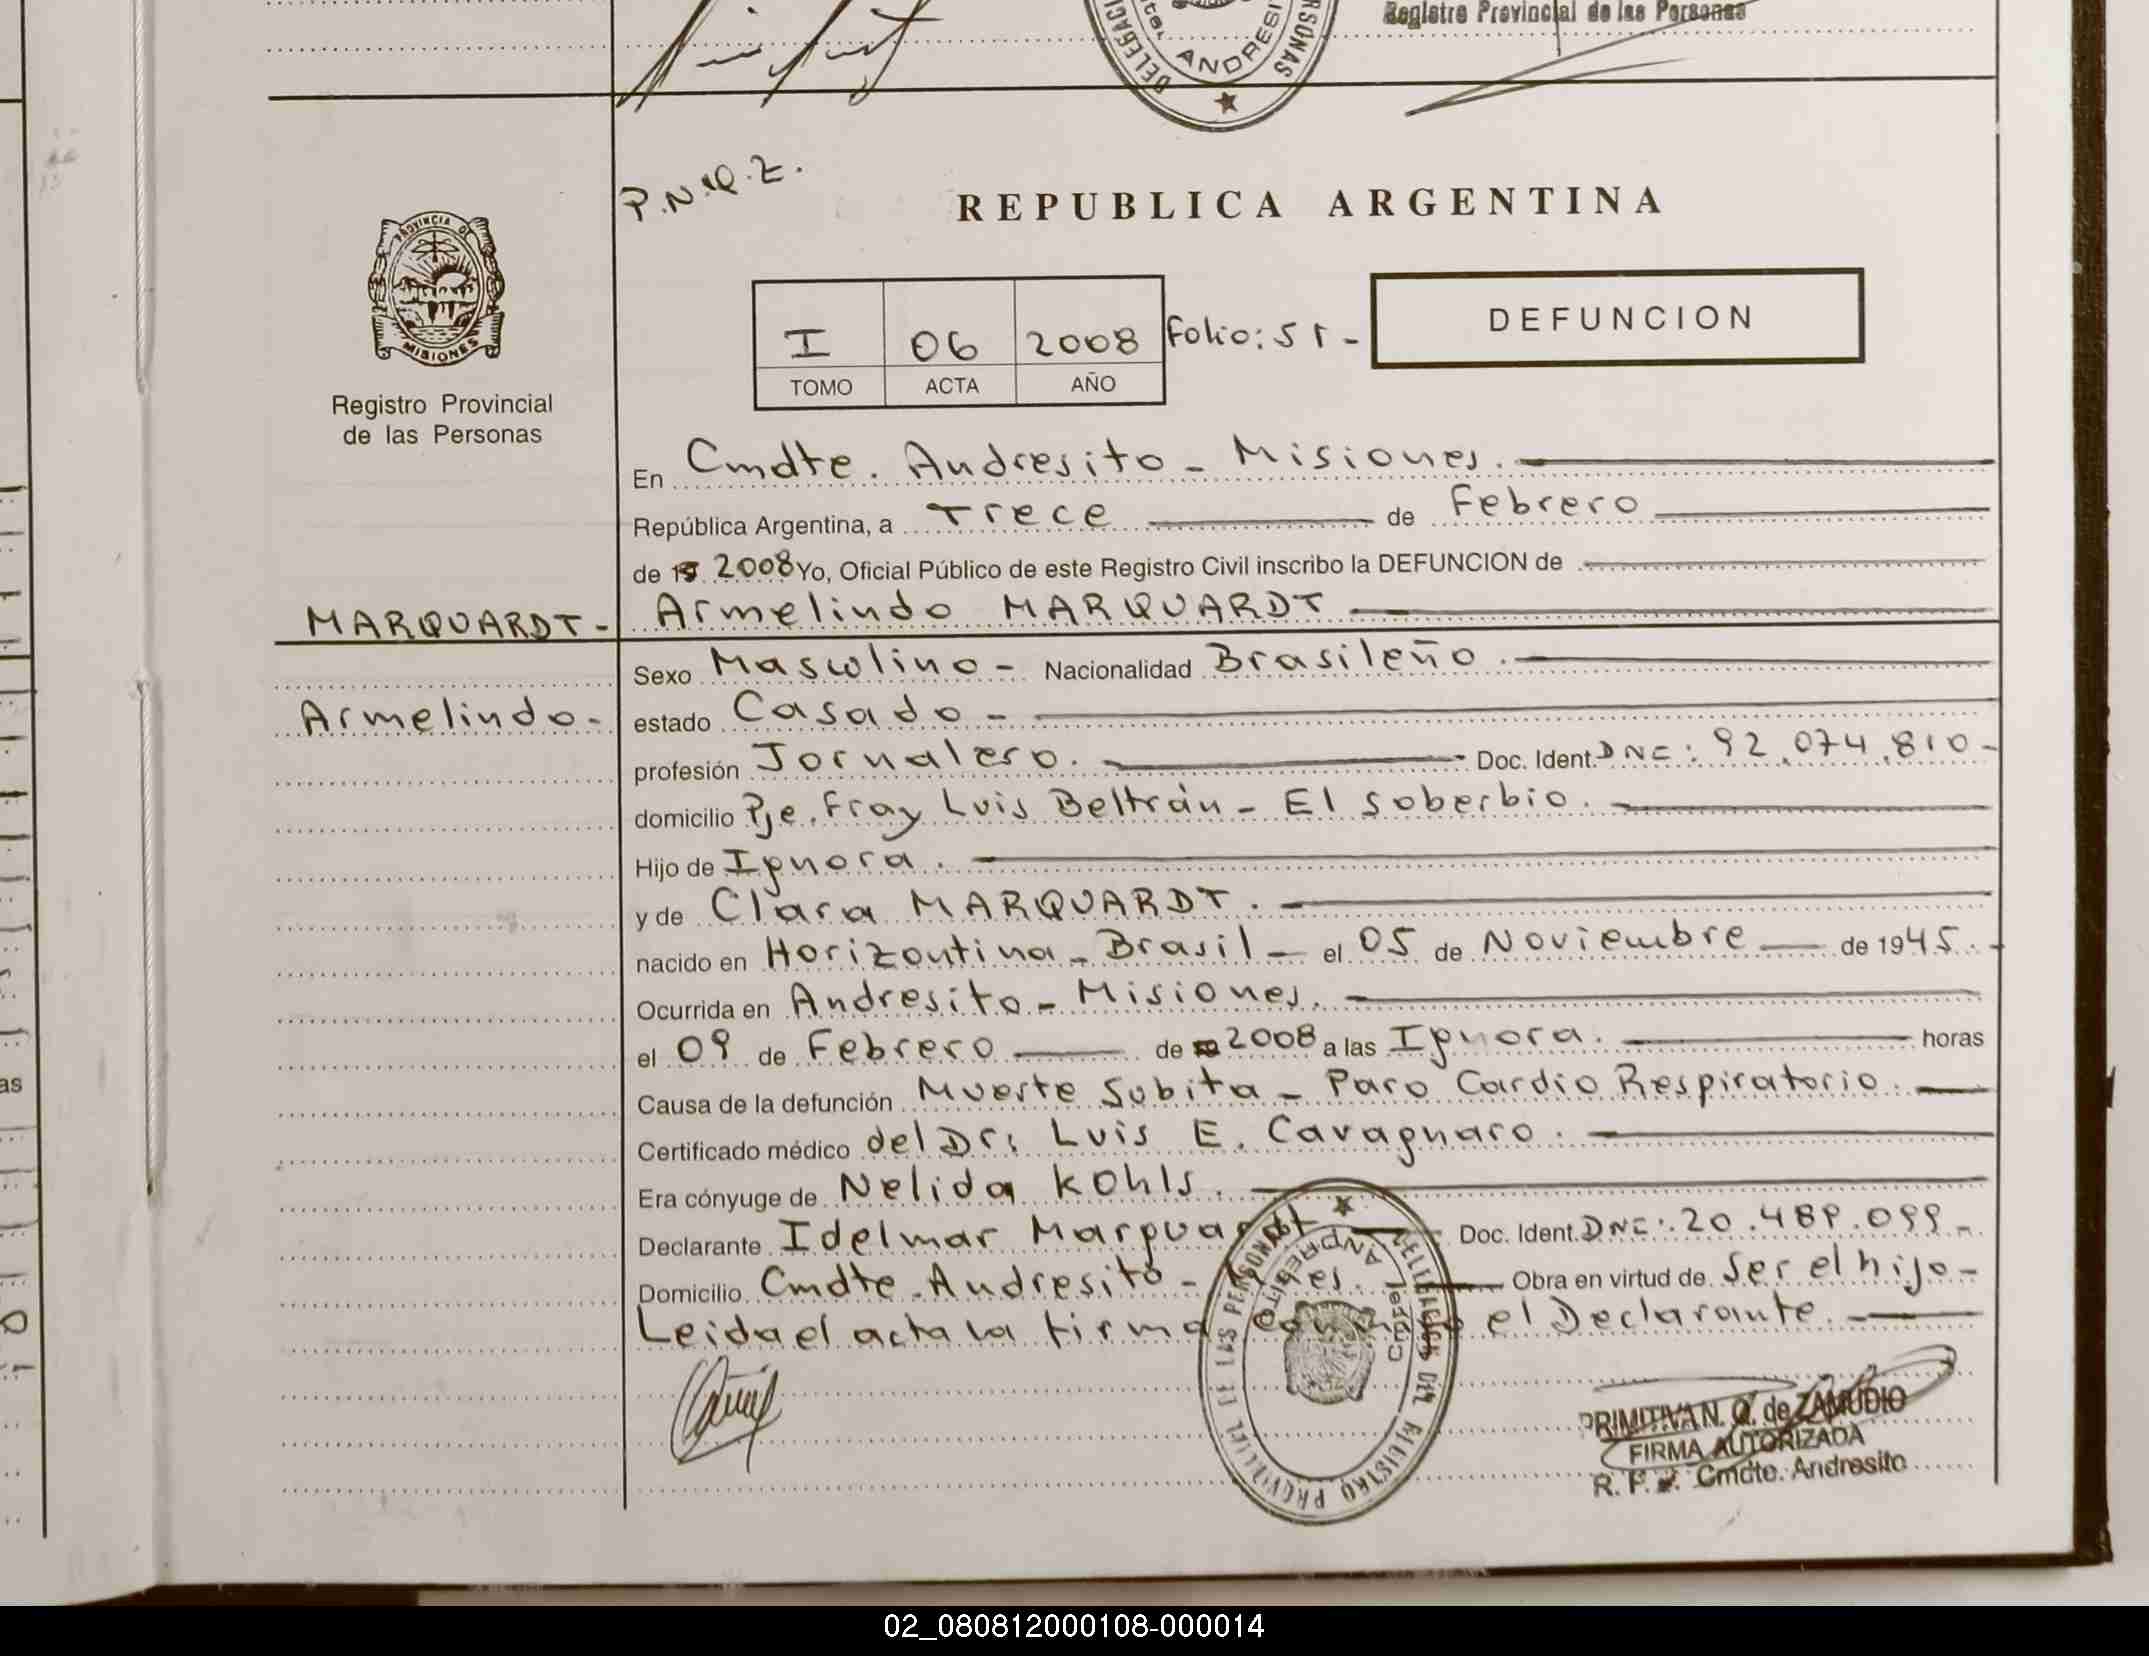 Registro Provincial de las Personas
DELEGACI
ANDRESI
RSONAS
P.N.Q.Z.
REPUBLICA ARGENTINA
PROVINCIA DE
MISIONES
Registro Provincial
de las Personas
I 06 2008 Folio: 51-
TOMO ACTA AÑO
DEFUNCION
En Cmdte. Andresito - Misiones.
República Argentina, a Trece de Febrero
de 19 2008 Yo, Oficial Público de este Registro Civil inscribo la DEFUNCION de
MARQUARDT- Armelindo MARQUARDT
Sexo Masculino- Nacionalidad Brasileño.
Armelindo- estado Casado-
profesión Jornalero. Doc. Ident. DNE: 92.074.810-
domicilio Pje. Fray Luis Beltrán - El soberbio.
Hijo de Ignora.
y de Clara MARQUARDT.
nacido en Horizontina - Brasil - el 05 de Noviembre de 1945.
Ocurrida en Andresito - Misiones.
el 09 de Febrero de 2008 a las Ignora. horas
Causa de la defunción Muerte Subita - Paro Cardio Respiratorio.
Certificado médico del Dr: Luis E. Cavagnaro.
Era cónyuge de Nelida Kohls.
Declarante Idelmar Marquardt Doc. Ident. DNE: 20.489.099-
Domicilio Cmdte. Andresito - Mnes. Obra en virtud de Ser el hijo-
Leida el acta la firma conmigo el Declarante.
DELEGACION DEL REGISTRO PROVINCIAL DE LAS PERSONAS
ANDRESITO
PRIMITIVA N. Q. de ZAMUDIO
FIRMA AUTORIZADA
R. P. P. Cmdte. Andresito
02_080812000108-000014